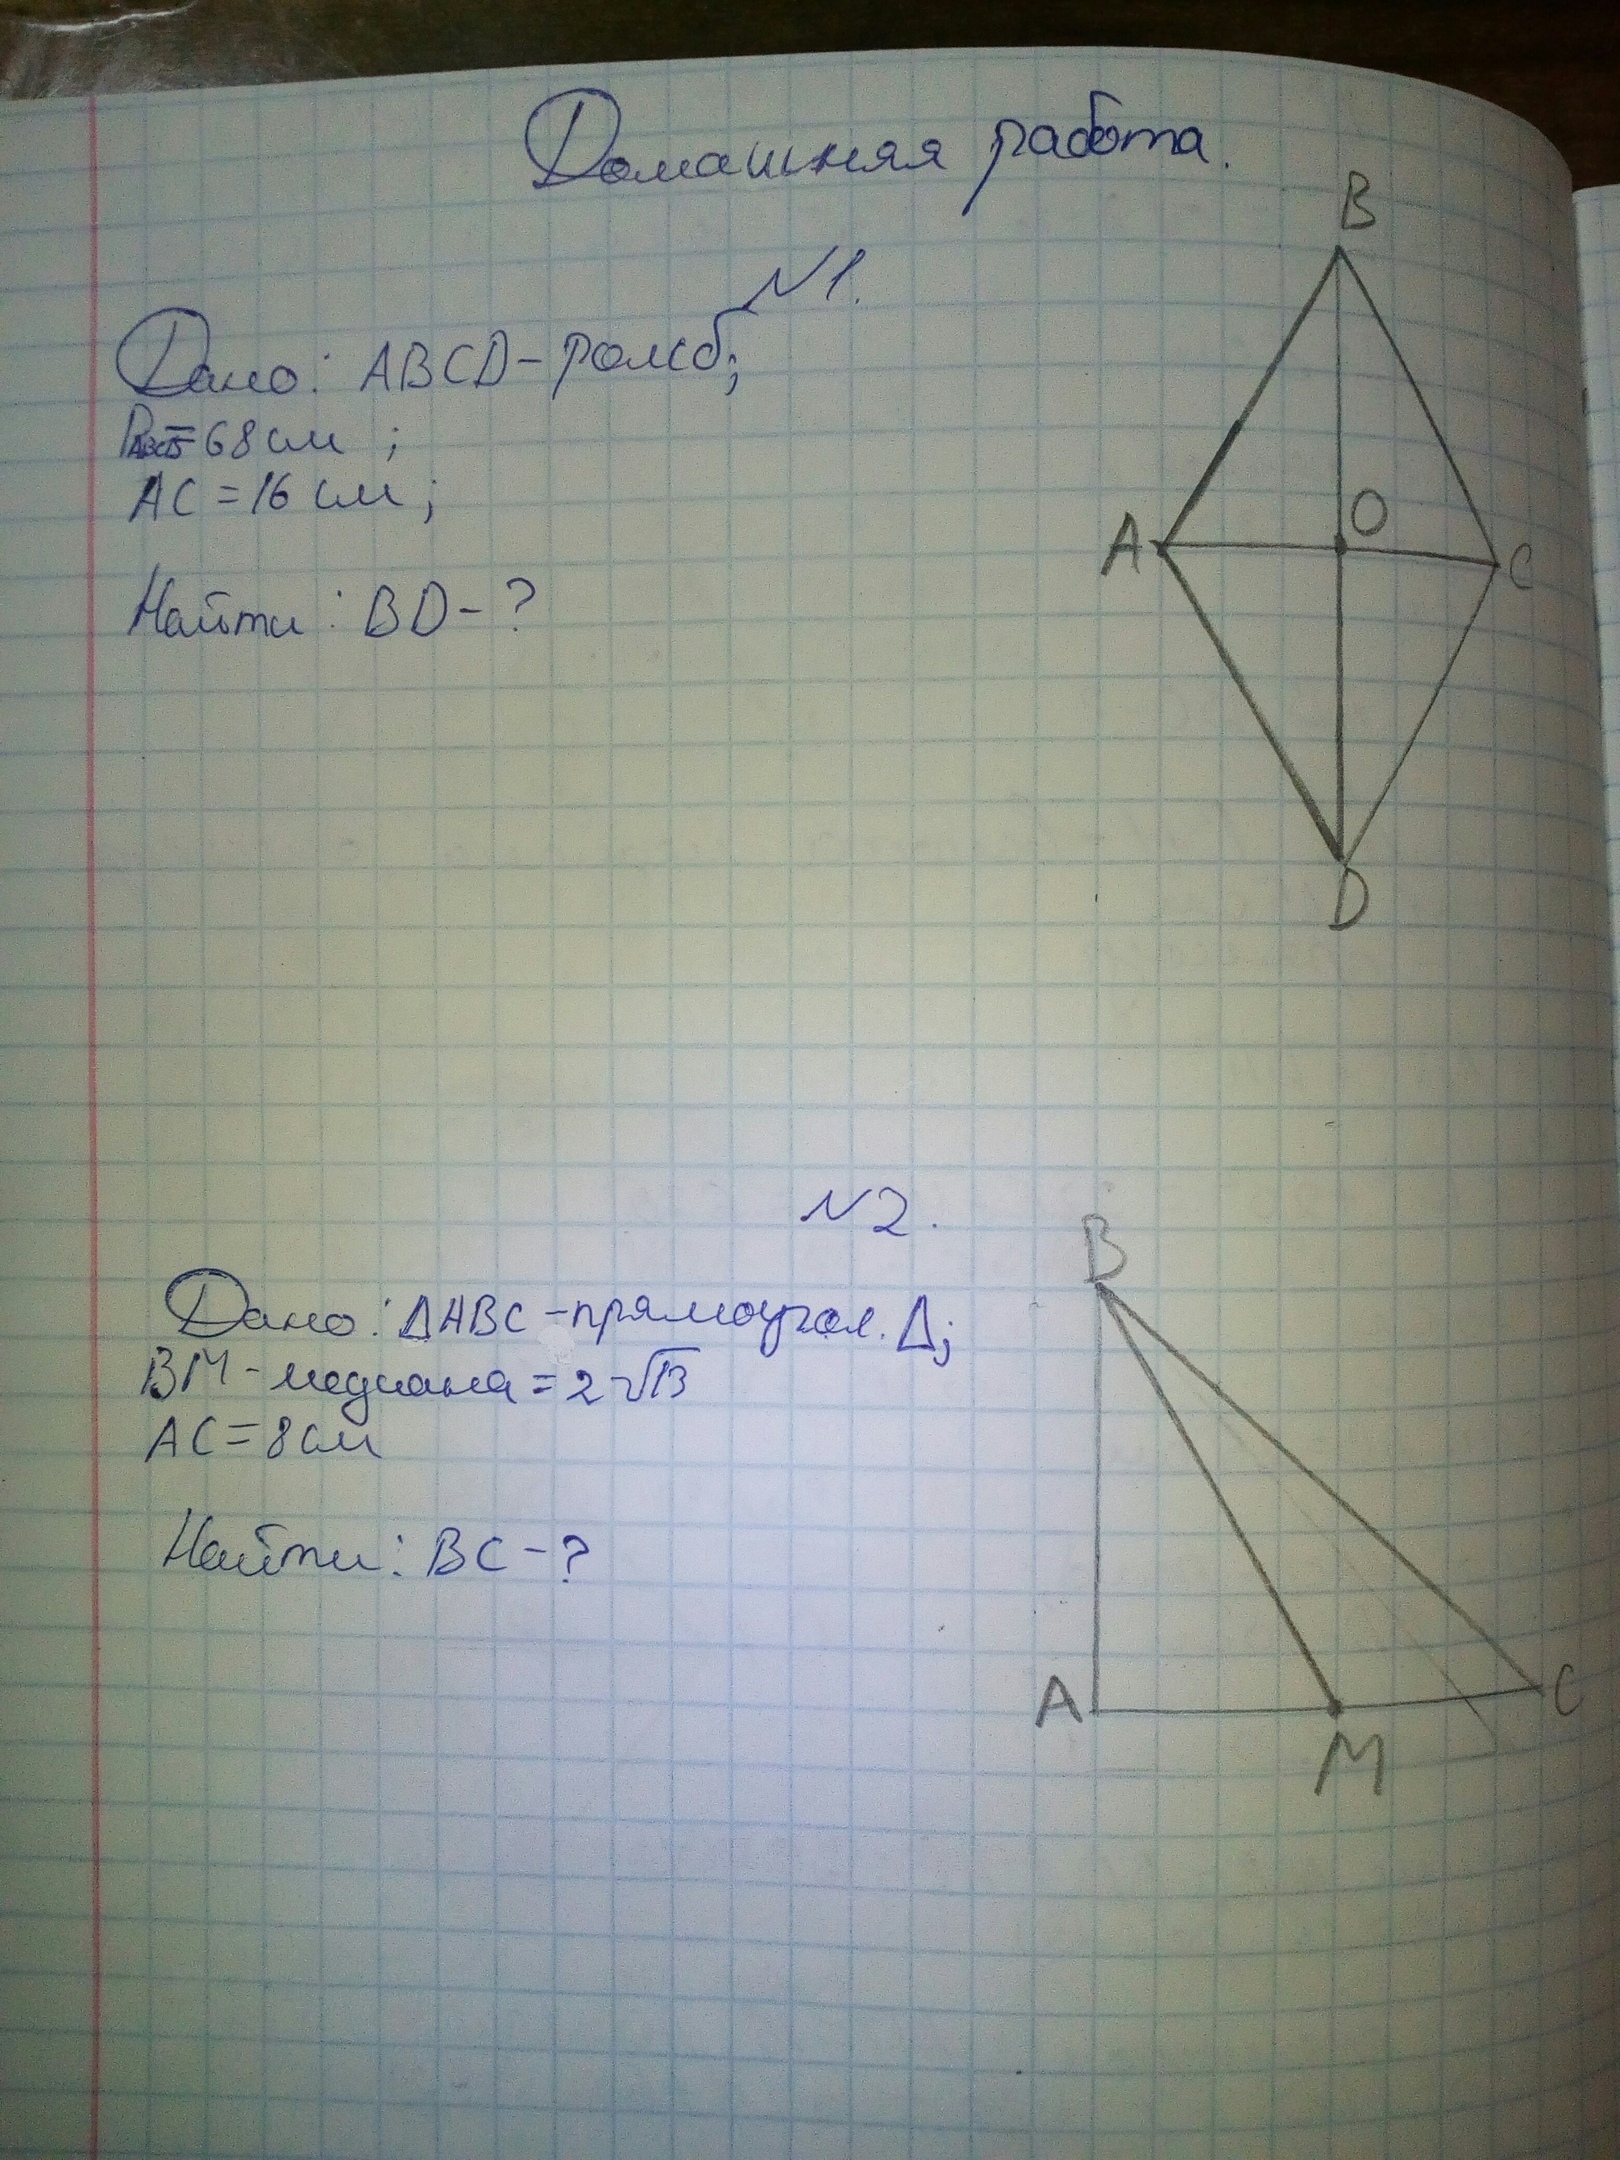 Домашняя работа.
№1.
Дано: ABCD - ромб;
PABCD = 68 см ;
AC = 16 см ;
Найти: BD - ?
B
A
O
C
D
№2.
Дано: ΔABC - прямоугол. Δ;
BM - медиана = 2√13
AC = 8 см
Найти: BC - ?
B
A
M
C